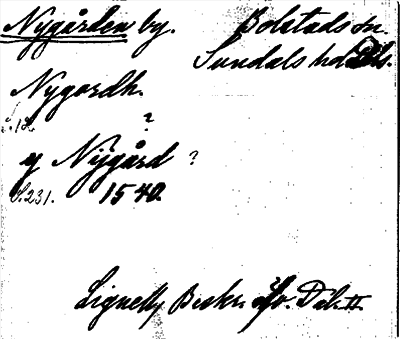 Nygården by. Bolstads sn.
Sundals hd Dls.
Nygordh.
S. 12 ?
y Nÿgård ?
S. 231. 1540.
Lignell, Beskr. Dal. II.